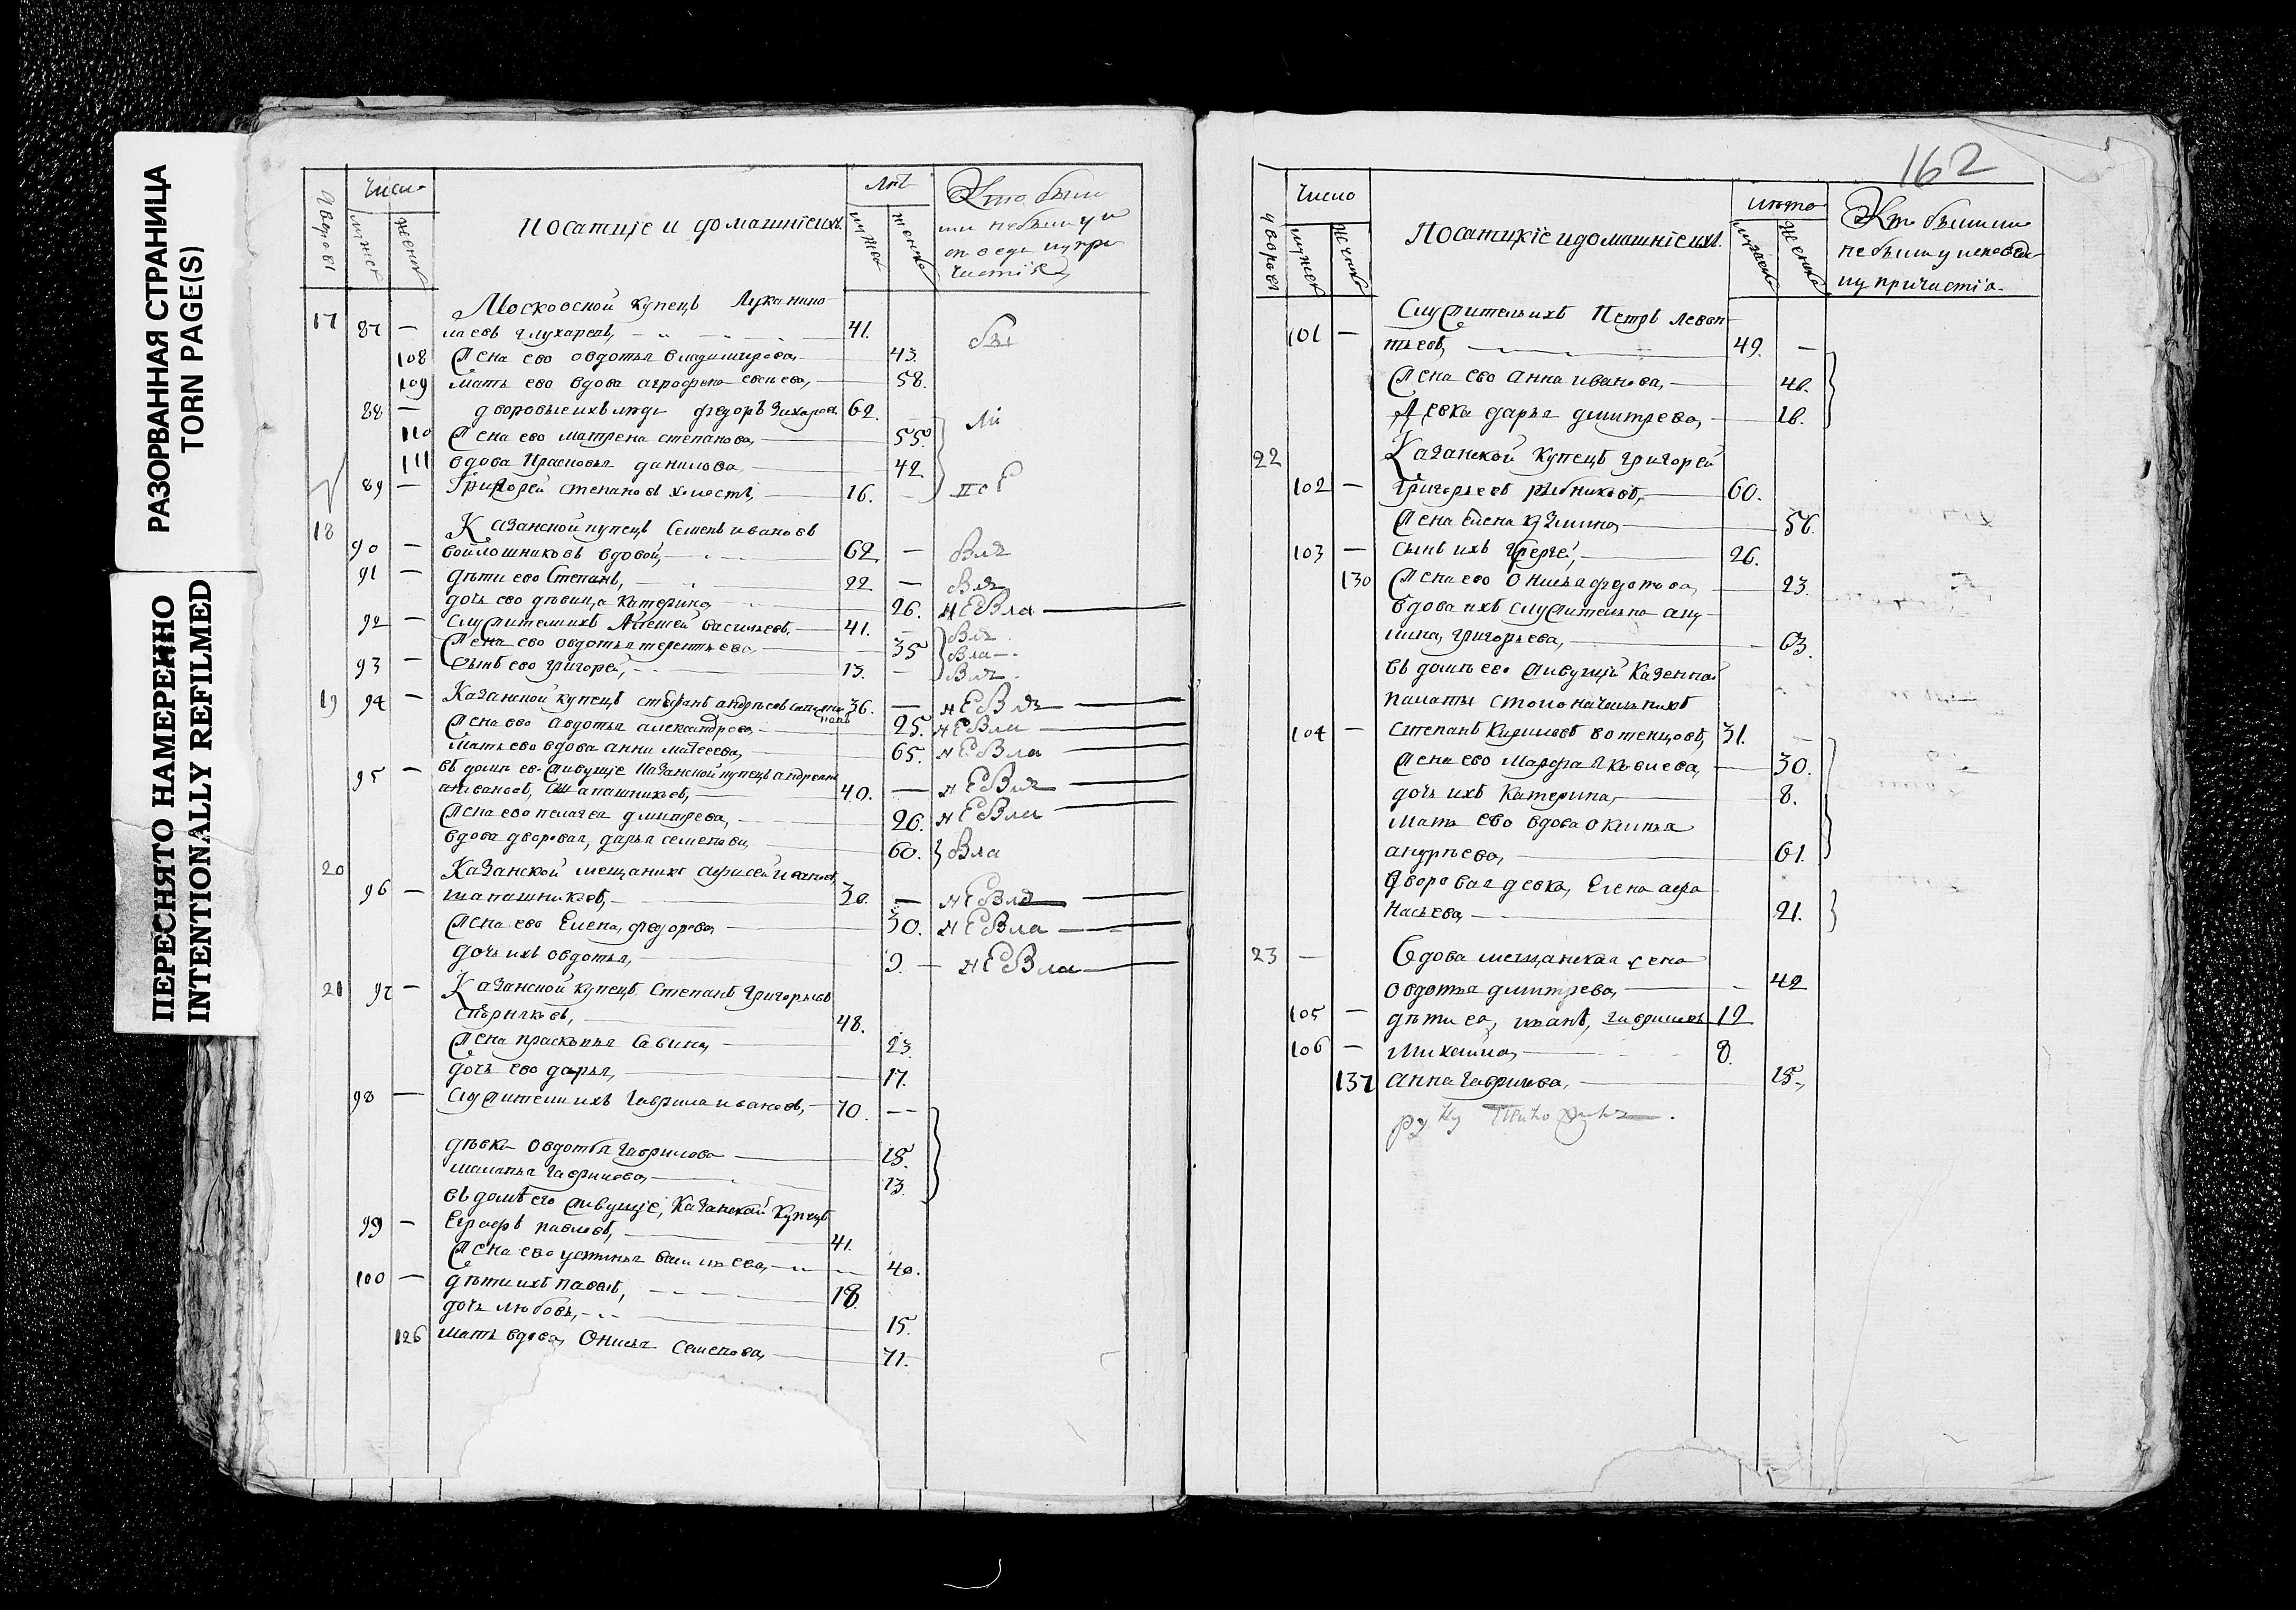 РАЗОРВАННАЯ СТРАНИЦА
TORN PAGE(S)
ПЕРЕСНЯТО НАМЕРЕННО
INTENTIONALLY REFILMED
дворовъ
Число
мужеск
женск
Посатцiе и домашнiе ихъ
Лѣт
мужес
женск
Кто были
17 Московской купецъ Лука нико
87 — лаевъ глухаревъ, 41. бы
108 Жена ево овдотья владимирова, 43.
109 мать ево вдова агрофена евсѣева, 58.
88 — дворовые ихъ люди федоръ Захаровъ 62.
110 Жена ево матрена степанова, 55.
111 вдова Прасковья данилова 42
89 — Григорей степановъ холостъ, 16.
18 Казанской купецъ Семенъ ивановъ
90 — войлошниковъ вдовой, 62 — Былъ
91 — дѣти ево Степанъ, 22 — Былъ
дочь ево дѣвица катерина 26. не Была
92 — служители ихъ Алексей васильевъ, 41. — Былъ
Жена ево овдотья терентьева 35 Была
93 — сынъ ево григорей, 13. — Былъ
19 94 — Казанской купецъ стефанъ андрѣевъ 36. — не Былъ
Жена ево авдотья александрова, 25. не Была
мать ево вдова анна матвеева, 65. не Была
въ домѣ ево живущие Казанской купецъ андреян
95 — ан ивановъ, Шапашниковъ, 40. — не Былъ
Жена ево пелагея дмитрева, 26. не Была
вдова дворовая, дарья семенова, 60. Была
20 Казанской мещанинъ алексей ивановъ
96 — шапашниковъ, 30. — не Былъ
Жена ево Елена, федорова 30. не Была
дочь ихъ овдотья, 9. — не Была
21 97 — Казанской купецъ Степанъ Григорьевъ
48.
Жена прасковья Савина, 23.
дочь ево дарья, 17.
98 — служители ихъ гаврила ивановъ, 70. —
дѣвка Овдотья гаврилова 18.
маланья гаврилова, 13.
въ домѣ его живущiе, Казанской Купецъ
99 — Еграфъ павловъ, 41.
Жена ево устинья васильева, 40.
100 — дѣти ихъ павелъ, 18.
дочь любовь, 15.
126 мать вдова, Онисья Семенова, 71.
162
дворовъ
Число
мужеск
женск
Посатцкiе и домашнiе ихъ
лѣто
мужеск
женск
Кто были или
не были у исповеди
и у причастiа.
Служители ихъ Петръ леон
101 — тьевъ, 49. —
Жена ево анна иванова, 46.
Девка дарья дмитрева, 16.
22 Казанской купецъ григорей
102 — Григорьевъ рыбниковъ, 60.
Жена елена кузмина, 56.
103 — сынъ ихъ Сергей, 26.
130 Жена ево Онисья федотова, 23.
вдова ихъ служительна аку
лина, григорьева, 63.
въ домѣ ево живущiй Казенной
палаты столоначальникъ
104 — степанъ Кириловъ вотенцовъ, 31. —
Жена ево марфа яковлева, 30.
дочь ихъ Катерина, 8.
мать ево вдова оксинья
андрѣева, 61.
Дворовая девка, Елена афа
насьева, 21.
23 — Вдова мещанская жена
овдотья дмитрева, 42
105 — дѣти ея, иванъ, гавриловъ 12
106 — Михайла, 8.
137 анна гаврилова, 15.
руку